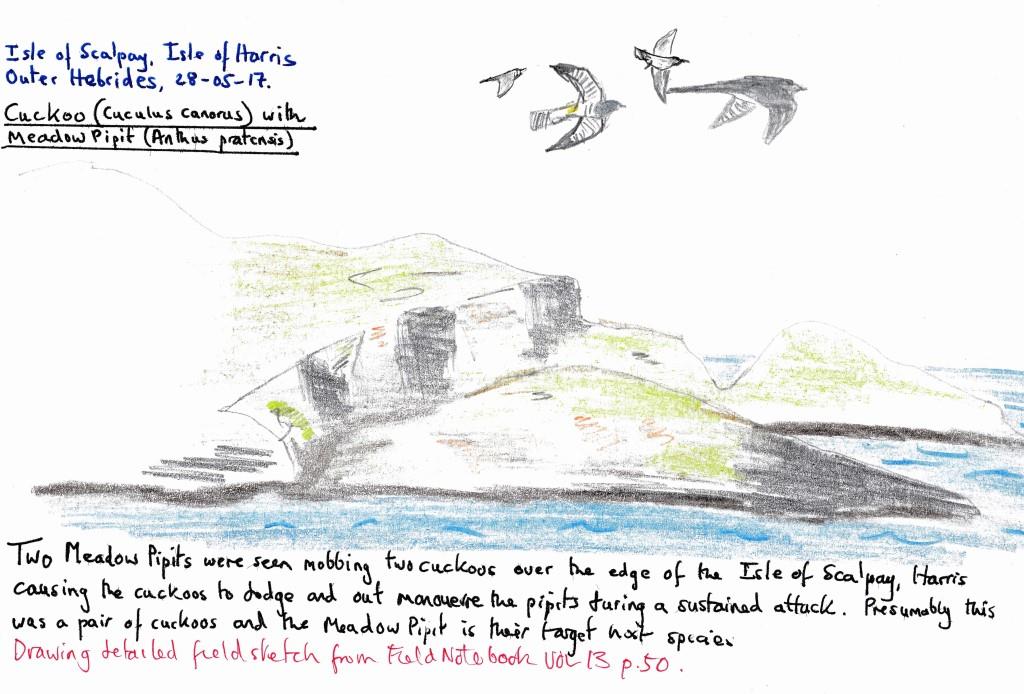 Isle of Scalpay, Isle of Harris
Outer Hebrides, 28-05-17.
Cuckoo (Cuculus canorus) with
Meadow Pipit (Anthus pratensis)
Two Meadow Pipits were seen mobbing two cuckoos over the edge of the Isle of Scalpay, Harris
causing the cuckoos to dodge and out manouevre the pipits during a sustained attack. Presumably this
was a pair of cuckoos and the Meadow Pipit is their target host species
Drawing detailed field sketch from Field Notebook Vol 13 p.50.